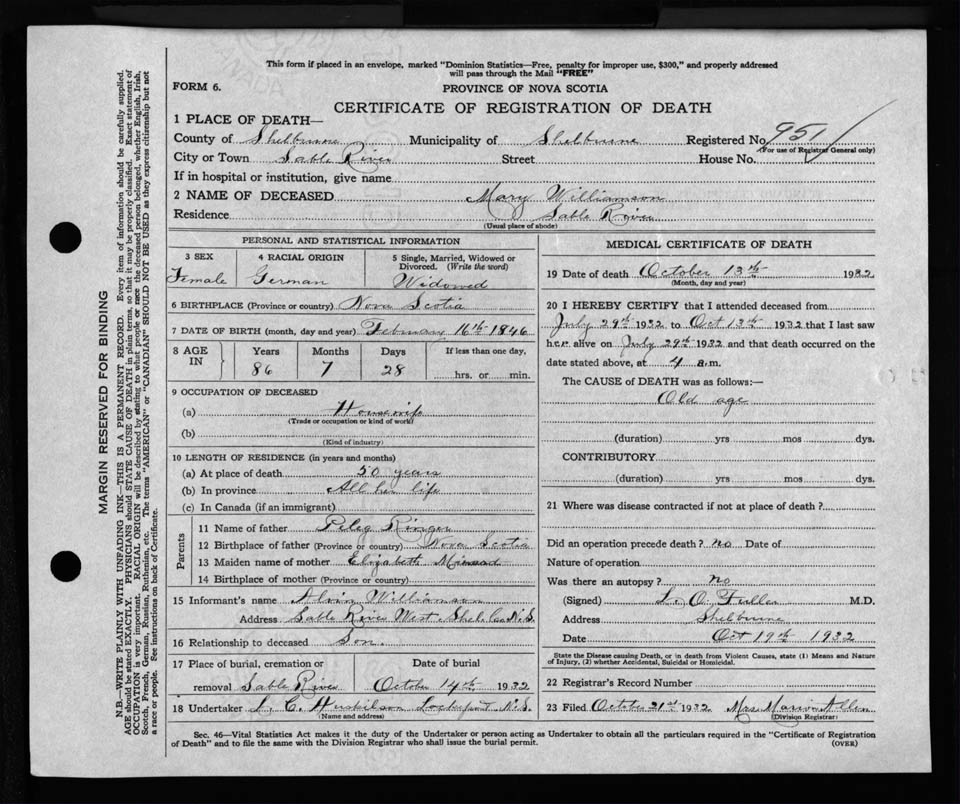 This form if placed in an envelope, marked "Dominion Statistics—Free, penalty for improper use, $300," and properly addressed
will pass through the Mail "FREE"
FORM 6.
PROVINCE OF NOVA SCOTIA
CERTIFICATE OF REGISTRATION OF DEATH
1 PLACE OF DEATH—
County of Shelburne Municipality of Shelburne Registered No. 951
(For use of Registrar General only)
City or Town Sable River Street House No.
If in hospital or institution, give name
2 NAME OF DECEASED Mary Williamson
Residence Sable River
(Usual place of abode)
PERSONAL AND STATISTICAL INFORMATION
3 SEX
Female
4 RACIAL ORIGIN
German
5 Single, Married, Widowed or
Divorced. (Write the word)
Widowed
6 BIRTHPLACE (Province or country) Nova Scotia
7 DATE OF BIRTH (month, day and year) February 16th 1846
8 AGE
IN
Years
86
Months
7
Days
28
If less than one day,
hrs. or min.
9 OCCUPATION OF DECEASED
(a) Housewife
(Trade or occupation or kind of work)
(b)
(Kind of industry)
10 LENGTH OF RESIDENCE (in years and months)
(a) At place of death 50 years
(b) In province All her life
(c) In Canada (if an immigrant)
Parents
11 Name of father Peleg Ringer
12 Birthplace of father (Province or country) Nova Scotia
13 Maiden name of mother Elizabeth
14 Birthplace of mother (Province or country)
15 Informant's name Alvin Williamson
Address Sable River West. Shel. Co. N.S.
16 Relationship to deceased Son.
17 Place of burial, cremation or
removal Sable River
Date of burial
October 14th 1932
18 Undertaker L. C. Huskilson Lockeport N.S.
(Name and address)
MEDICAL CERTIFICATE OF DEATH
19 Date of death October 13th 1932
(Month, day and year)
20 I HEREBY CERTIFY that I attended deceased from
July 29th 1932 to Oct 13th 1932 that I last saw
her alive on July 29th 1932 and that death occurred on the
date stated above, at 4 a.m.
The CAUSE of DEATH was as follows:—
Old age
(duration) yrs mos dys.
CONTRIBUTORY
(duration) yrs mos dys.
21 Where was disease contracted if not at place of death?
Did an operation precede death? no Date of
Nature of operation
Was there an autopsy? no
(Signed) L. O. Fuller M.D.
Address Shelburne
Date Oct 19th 1932
State the Disease causing Death, or in death from Violent Causes, state (1) Means and Nature
of Injury, (2) whether Accidental, Suicidal or Homicidal.
22 Registrar's Record Number
23 Filed October 21st 1932 Mrs. Marion Allen
(Division Registrar)
Sec. 46—Vital Statistics Act makes it the duty of the Undertaker or person acting as Undertaker to obtain all the particulars required in the "Certificate of Registration
of Death" and to file the same with the Division Registrar who shall issue the burial permit.
(OVER)
MARGIN RESERVED FOR BINDING
N.B.—WRITE PLAINLY WITH UNFADING INK—THIS IS A PERMANENT RECORD. Every item of information should be carefully supplied.
AGE should be stated EXACTLY. PHYSICIANS should STATE CAUSE OF DEATH in plain terms, so that it may be properly classified. Exact statement of
OCCUPATION is very important. RACIAL ORIGIN will be described by stating to what people or race the deceased person belonged, whether English, Irish,
Scotch, French, German, Russian, Ruthenian, etc. The terms "AMERICAN" or "CANADIAN" SHOULD NOT BE USED as they express citizenship but not
a race or people. See instructions on back of Certificate.